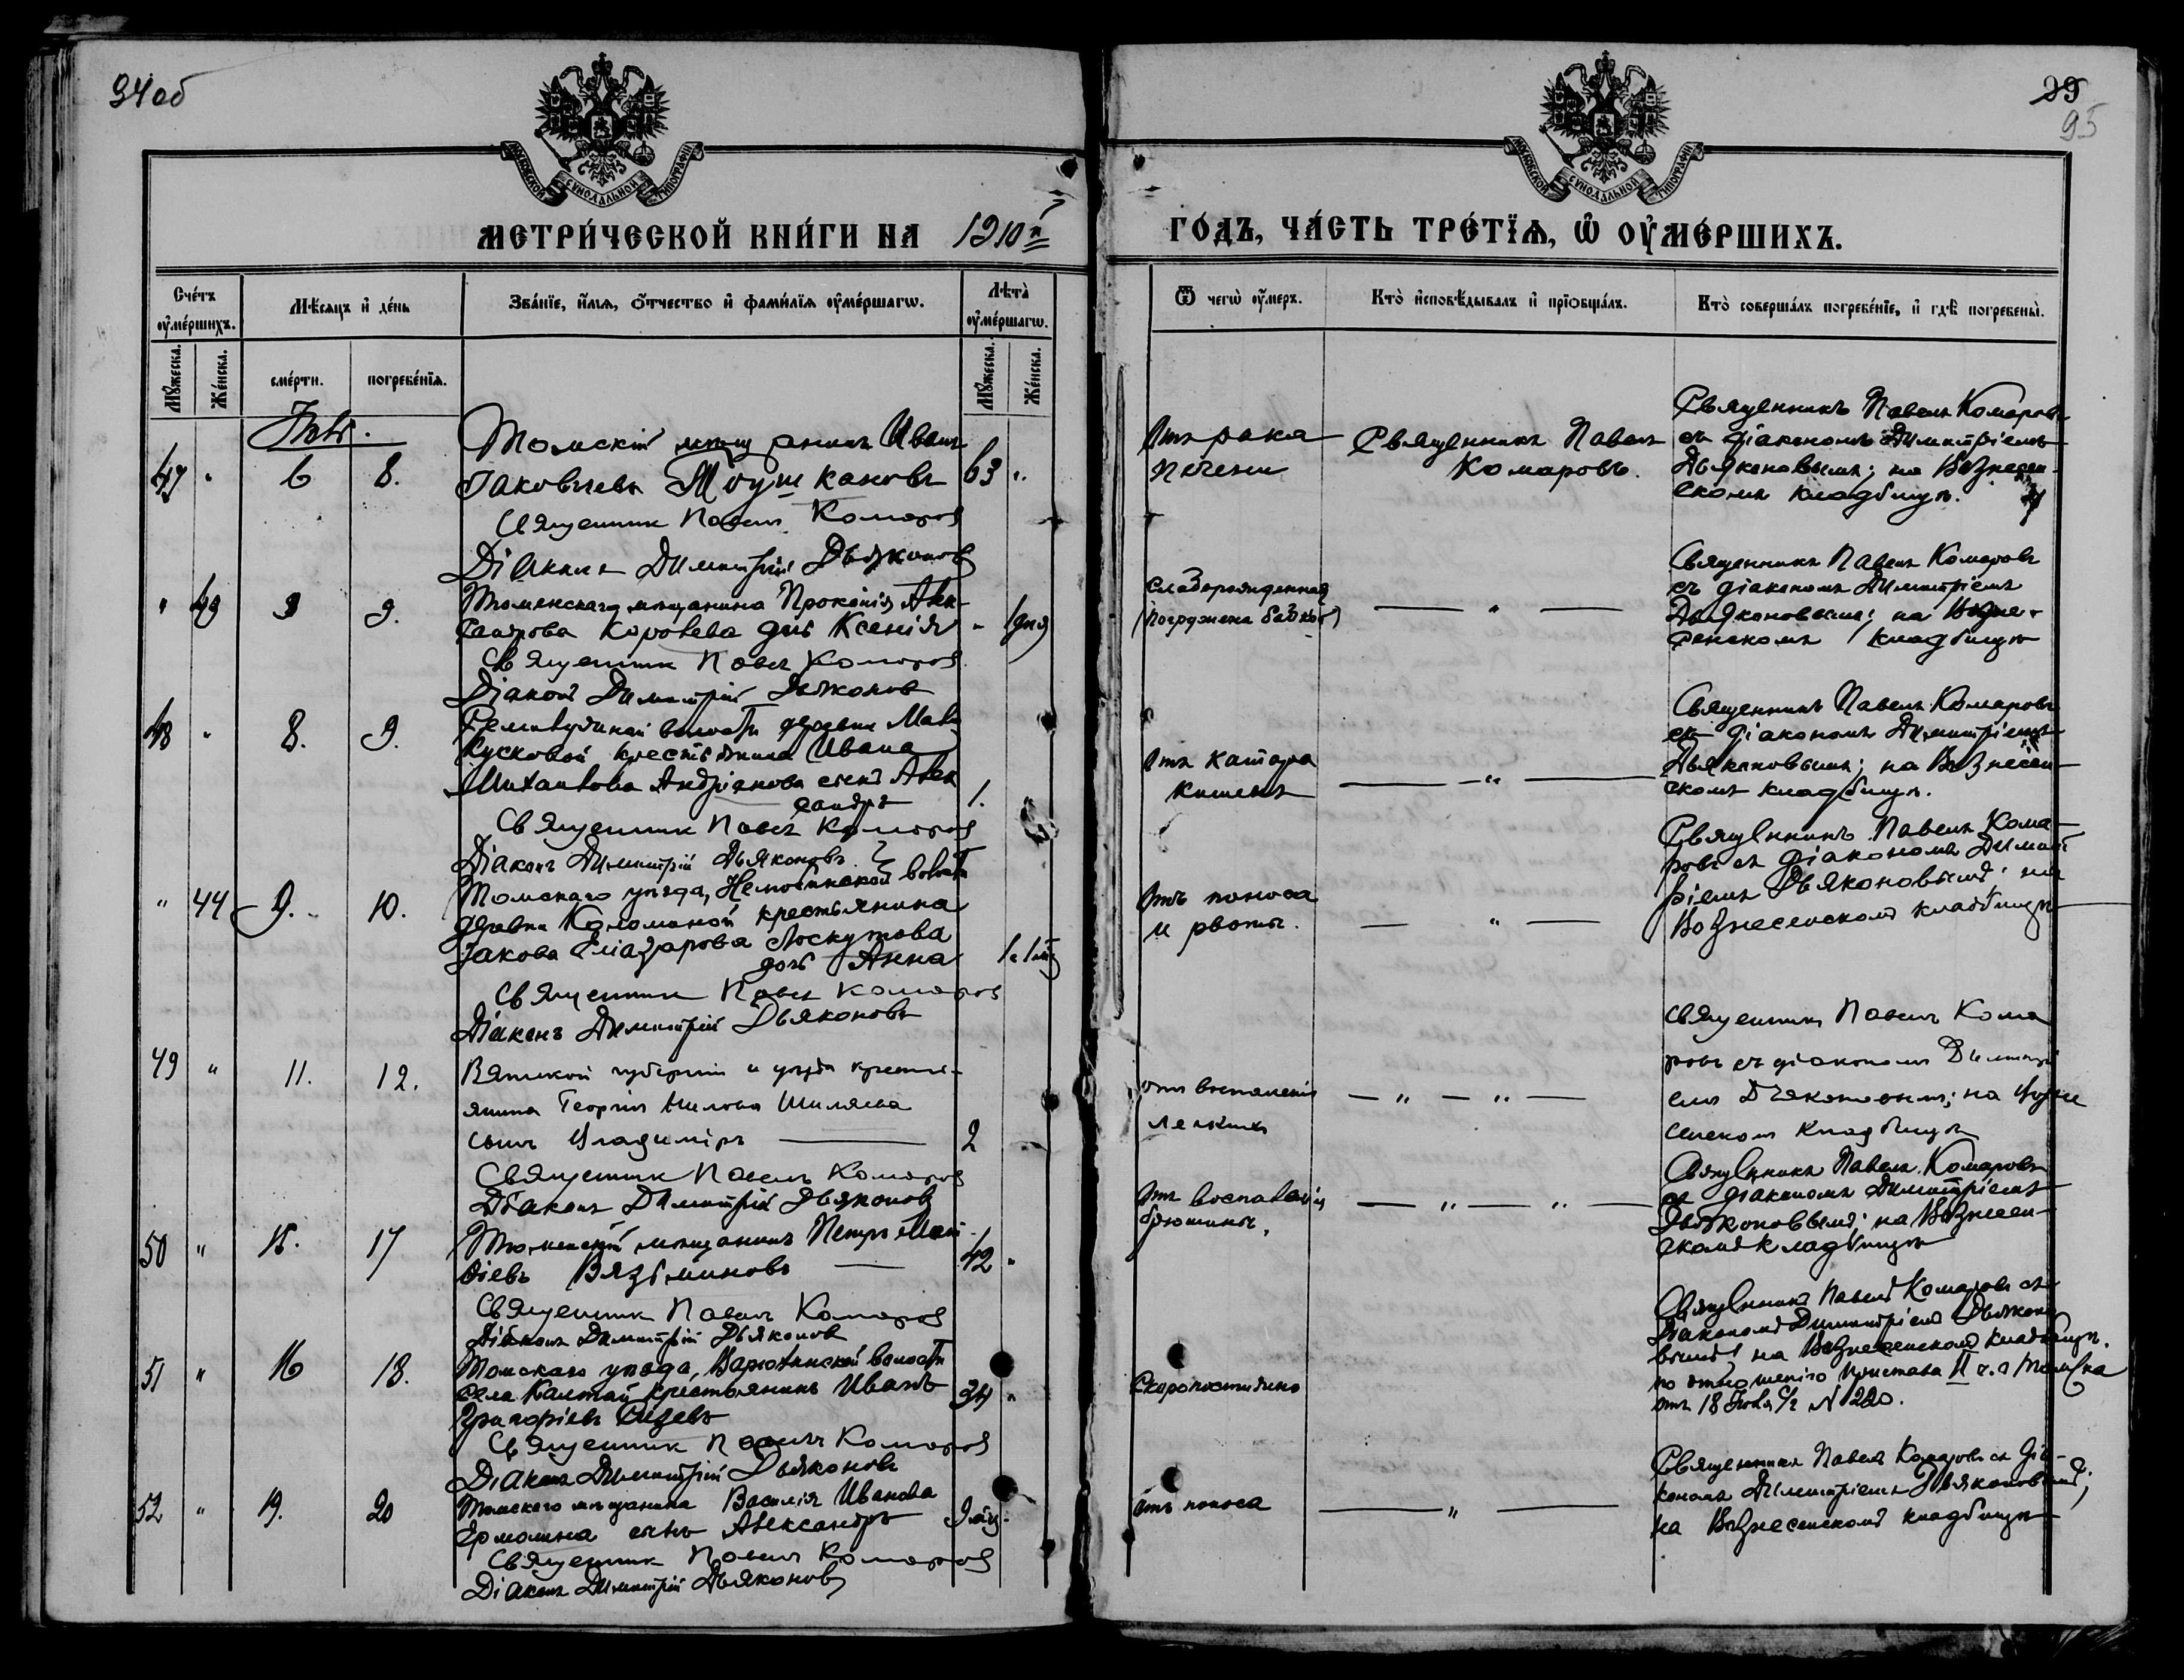 94об
95
МОСКОВСКОЙ СУНОДАЛЬНОЙ ТИПОГРАФІИ
МОСКОВСКОЙ СУНОДАЛЬНОЙ ТИПОГРАФІИ
МЕТРИ́ЧЕСКОЙ КНИ́ГИ НА 1910 г.
ГО́ДЪ, ЧА́СТЬ ТРЕ́ТЇѦ, Ѡ҆ ОУ҆МЕ́РШИХЪ.
Сче́тъ оу҆ме́ршихъ.
Мѣ́сяцъ и҆ де́нь
Зва́нїе, и҆́мѧ, ѻ҆́тчество и҆ фами́лїѧ оу҆ме́ршагѡ.
Лѣ́та оу҆ме́ршагѡ.
Ѿ чегѡ̀ оу҆́меръ.
Кто̀ и҆сповѣ́дывалъ и҆ прїѻбща́лъ.
Кто̀ соверша́лъ погребе́нїе, и҆ гдѣ̀ погребены̀.
Мꙋ́жеска.
Же́нска.
сме́рти.
погребе́нїѧ.
Мꙋ́жеска.
Же́нска.
Іюль.
47 " 6 8.
Томскій мѣщанинъ Иванъ
Іаковлевъ
63 "
Священник Павел Комаров
Діаконъ Димитрій Дьяконов
Отъ рака
печени
Священникъ Павелъ
Комаровъ.
Священникъ Павелъ Комаровъ
съ діакономъ Димитріемъ
Дьяконовымъ; на Вознесен-
скомъ кладбищѣ.
" 9.
мѣщанина Прокопія Алек-
сандрова Королева дочь Ксенія
" 1 дня
Священник Павел Комаров
Діаконъ Димитрій Дьяконов
Слаборожденная
(погружена бабкой)
— " —
Священникъ Павелъ Комаровъ
съ діакономъ Димитріемъ
Дьяконовымъ; на Возне-
сенскомъ кладбищѣ
48 " 8. 9.
волости деревни Мало
Кусковой крестьянина Ивана
Михаилова Андріанова сынъ Алек
сандръ 1.
Священник Павел Комаров
Діаконъ Димитрій Дьяконовъ
Отъ катара
кишекъ
— " —
Священникъ Павелъ Комаровъ
съ діакономъ Димитріемъ
Дьяконовымъ; на Вознесен-
скомъ кладбищѣ.
" 44 9. 10.
Томскаго уѣзда, Нелюбинской волости
деревни крестьянина
Іакова Елиазарова Лоскутова
дочь Анна
Священник Павел Комаров
Діаконъ Димитрій Дьяконовъ
Отъ поноса
и рвоты.
— " —
Священникъ Павелъ Кома-
ровъ съ діакономъ Димит
ріемъ Дьяконовымъ; на
Вознесенскомъ кладбищѣ
49 " 11. 12.
Вятской губерніи и уѣзда кресть-
янина Георгія Шиляева
сынъ Владиміръ — 2
Священник Павелъ Комаров
Діаконъ Димитрій Дьяконов
отъ воспаленія
легкихъ
— " — " —
Священникъ Павелъ Кома
ровъ съ діакономъ Димитрі
емъ Дьяконовымъ; на Возне
сенском кладбищѣ
50 " 15. 17
мѣщанинъ Петръ
Вязьминовъ — 42 "
Священник Павелъ Комаров
Діаконъ Димитрій Дьяконов
Отъ воспаленія
брюшины.
— " — " —
Священникъ Павелъ Комаровъ
съ діакономъ Димитріемъ
Дьяконовымъ; на Вознесен-
скомъ кладбищѣ
51 " 16 18.
Томскаго уѣзда, Варюхинской волости
села Калтай крестьянинъ Иванъ
Григорьевъ
34 "
Священник Павелъ Комаров
Діаконъ Димитрій Дьяконовъ
Скоропостижно
Священникъ Павелъ Комаровъ съ
діакономъ Димитріемъ Дьяконо
вымъ, на Вознесенскомъ кладбищѣ.
по отношенію пристава II ч. г Томска
отъ 18 Іюля с/г №1220.
52 " 19. 20
Томскаго мѣщанина Василія Иванова
Ермолина сынъ Александръ 9 мѣс.
Священник Павелъ Комаров
Діаконъ Димитрій Дьяконов
отъ поноса
— " —
Священникъ Павелъ Комаровъ съ діа-
кономъ Димитріемъ Дьяконовымъ;
на Вознесенскомъ кладбищѣ